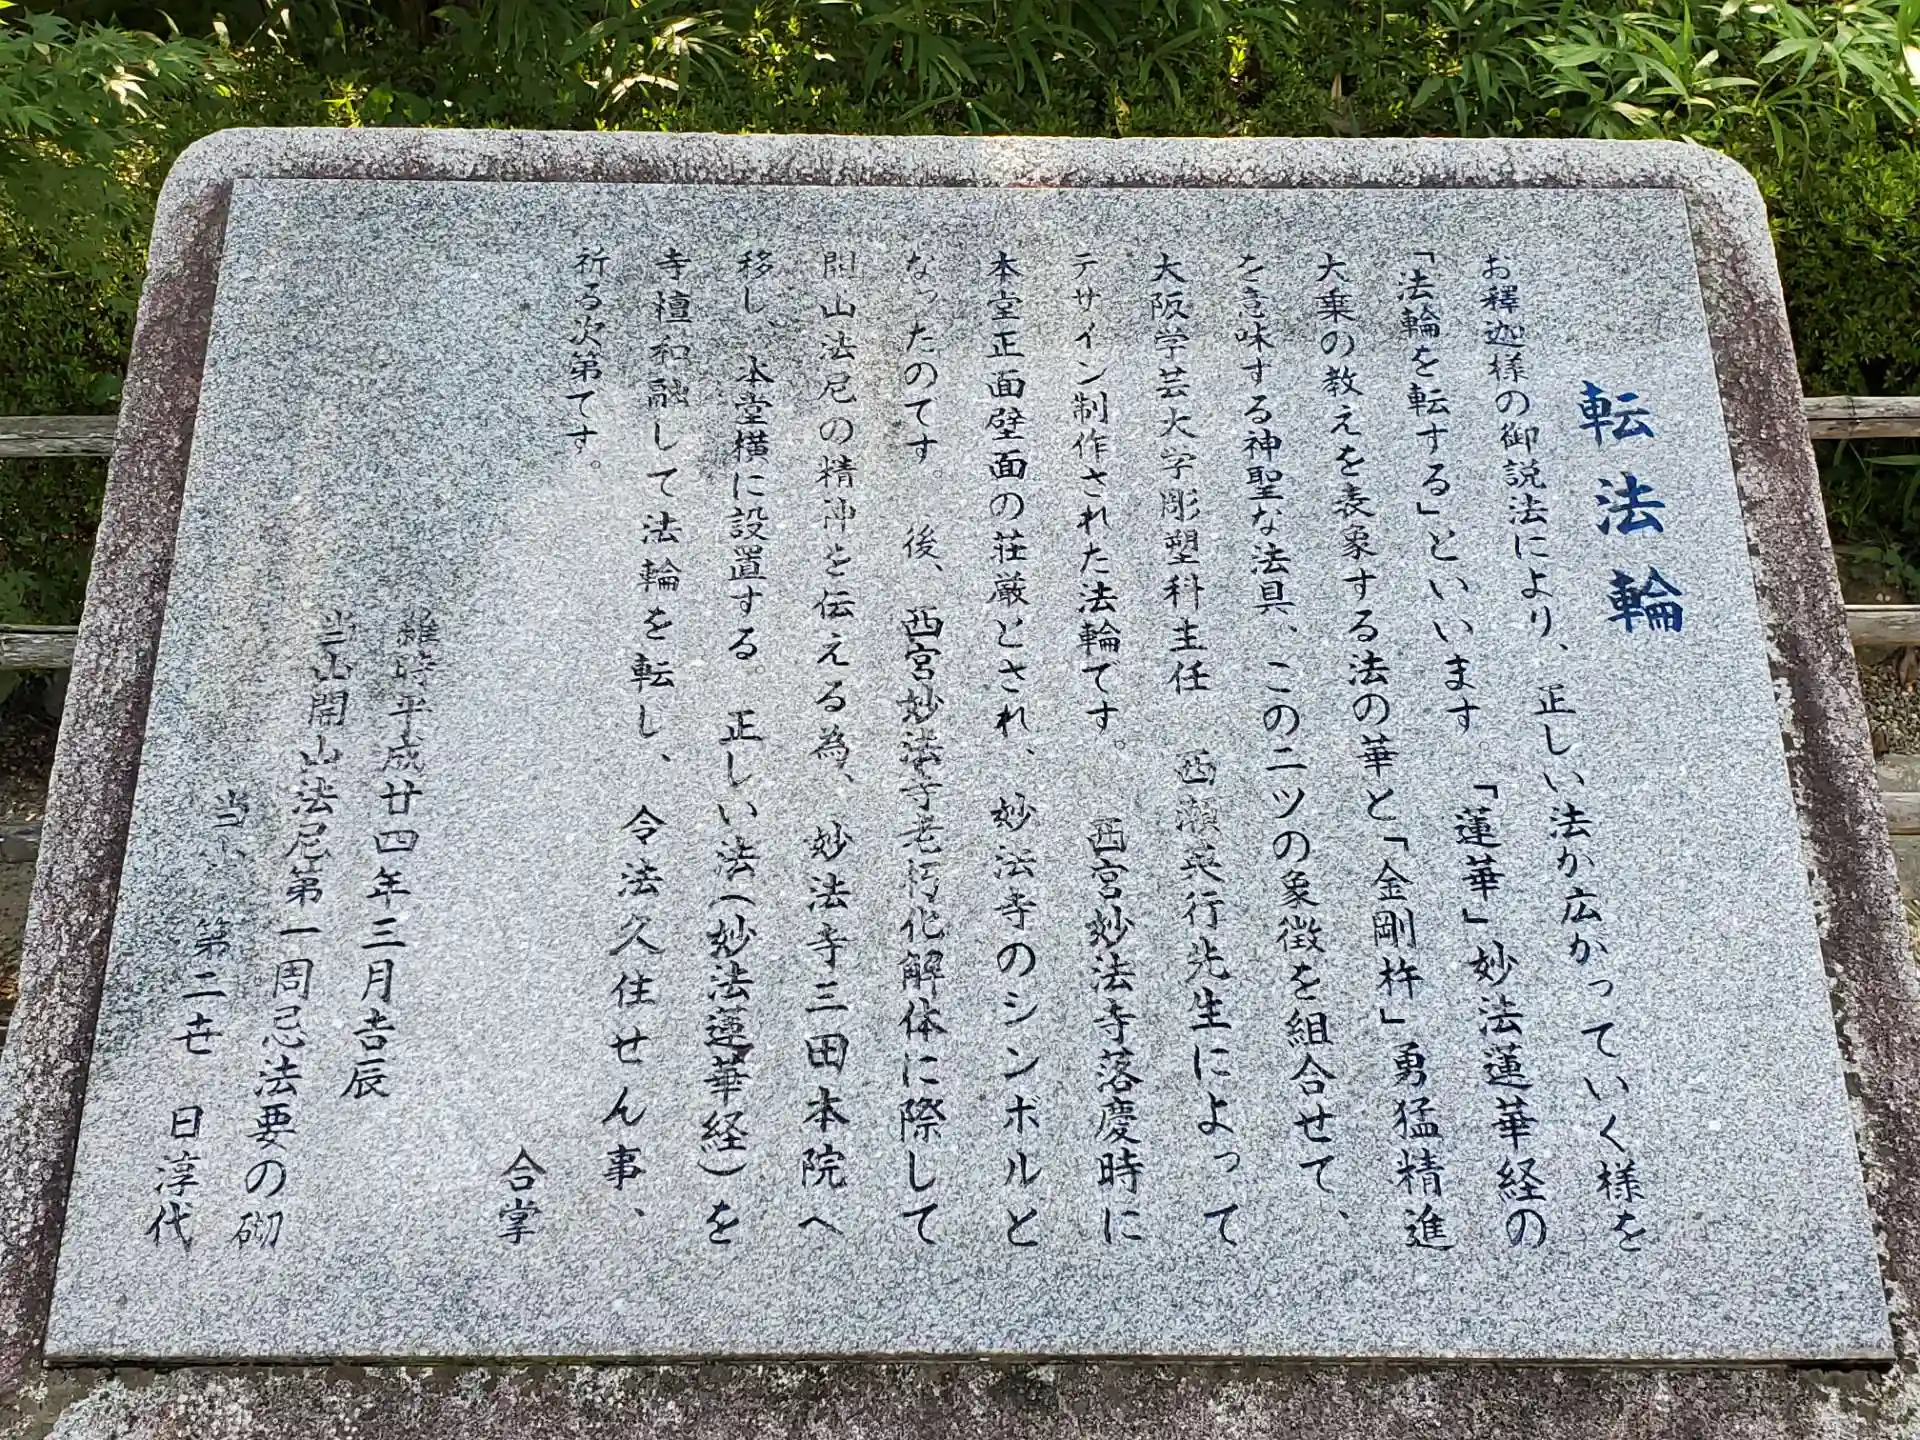 転法輪
お釋迦様の御説法により、正しい法が広がっていく様を
「法輪を転する」といいます。「蓮華」妙法蓮華経の
大乗の教えを表象する法の華と「金剛杵」勇猛精進
を意味する神聖な法具、この二ツの象徴を組合せて、
大阪学芸大学彫塑科主任 西瀬英行先生によって
デザイン制作された法輪です。西宮妙法寺落慶時に
本堂正面壁面の荘厳とされ、妙法寺のシンボルと
なったのです。後、西宮妙法寺老朽化解体に際して
開山法尼の精神を伝える為、妙法寺三田本院へ
移し、本堂横に設置する。正しい法(妙法蓮華経)を
寺檀和融して法輪を転し、令法久住せん事、
祈る次第です。
合掌
維時平成廿四年三月吉辰
当山開山法尼第一周忌法要の砌
当山 第二世 日淳代